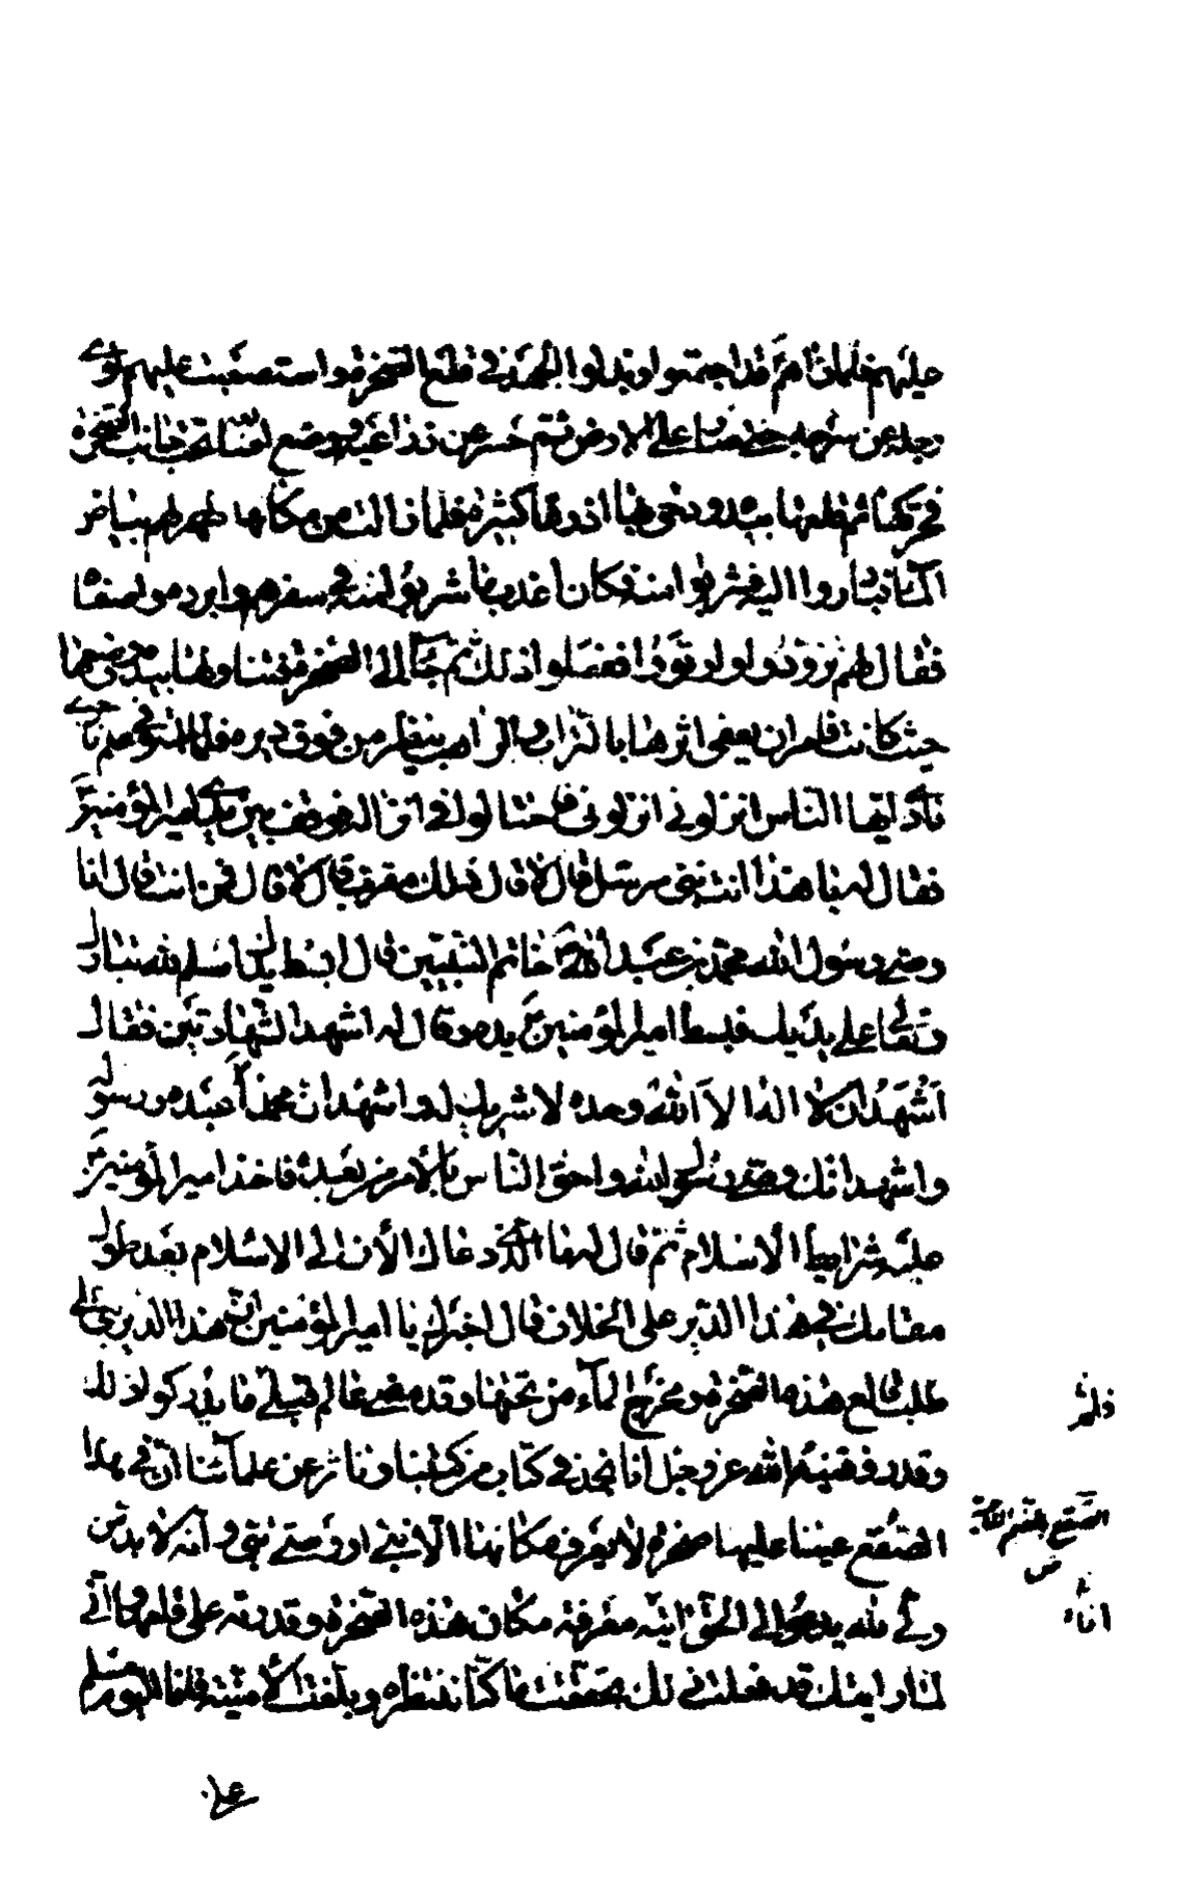 عليهم فلما رآهم ع قد اجتمعوا وبذلوا الجهد في قلع الصخرة واستصعبت عليهم لوى
رجله عن سرجه حتى صار على الارض ثم حسر عن ذراعيه ووضع اصابعه تحت جانب الصخرة
فحركها ثم قلعها بيده ودحى بها اذرعا كثيرة فلما زالت من مكانها ظهر لهم بياض
الماء فتبادروا اليه فشربوا منه فكان اعذب ماء شربوا منه في سفرهم وابرده واصفاه
فقال لهم تزودوا وارتووا ففعلوا ذلك ثم جاء الى الصخرة فتناولها بيده ووضعها
حيث كانت فامر ان يعفى اثرها بالتراب والراهب ينظر من فوق ديره فلما استوفى علم ما جرى
نادى ايها الناس انزلوني انزلوني فاحتالوا في انزاله فوقف بين يدي امير المؤمنين ع
فقال له يا هذا انت نبي مرسل قال لا قال فملك مقرب قال لا قال فمن انت قال انا
وصي رسول الله محمد بن عبد الله خاتم النبيين قال ابسط يدك اسلم لله تبارك
وتعالى على يديك فبسط امير المؤمنين ع يده وقال له اشهد الشهادتين فقال
اَشْهَدُ ان لا اله الا الله وحده لا شريك له واشهد ان محمداً عبده ورسوله
واشهد انك وصي رسول الله واحق الناس بالأمر من بعده فاخذ امير المؤمنين ع
عليه شرايط الاسلام ثم قال له ما الذي دعاك الأن الى الاسلام بعد طول
مقامك في هذا الدير على الخلاف قال اخبرك يا امير المؤمنين ان هذا الدير بني على
طلب قالع هذه الصخرة ومخرج الماء من تحتها وقد مضى عالم قبلي فلم يدركوا ذلك
وقد رزقنيه الله عز وجل انا نجد في كتاب من كتبنا وناثر عن علمائنا ان في هذا
الصقع عينا عليها صخرة لا يعرف مكانها الا نبي او وصي نبي وانه لا بد من
ولي لله يدعو الى الحق آيته معرفة مكان هذه الصخرة وقدرته على قلعها واني
لما رايتك قد فعلت ذلك تحققت ما كنا ننتظره وبلغت الأمنية فانا اليوم مسلم
على